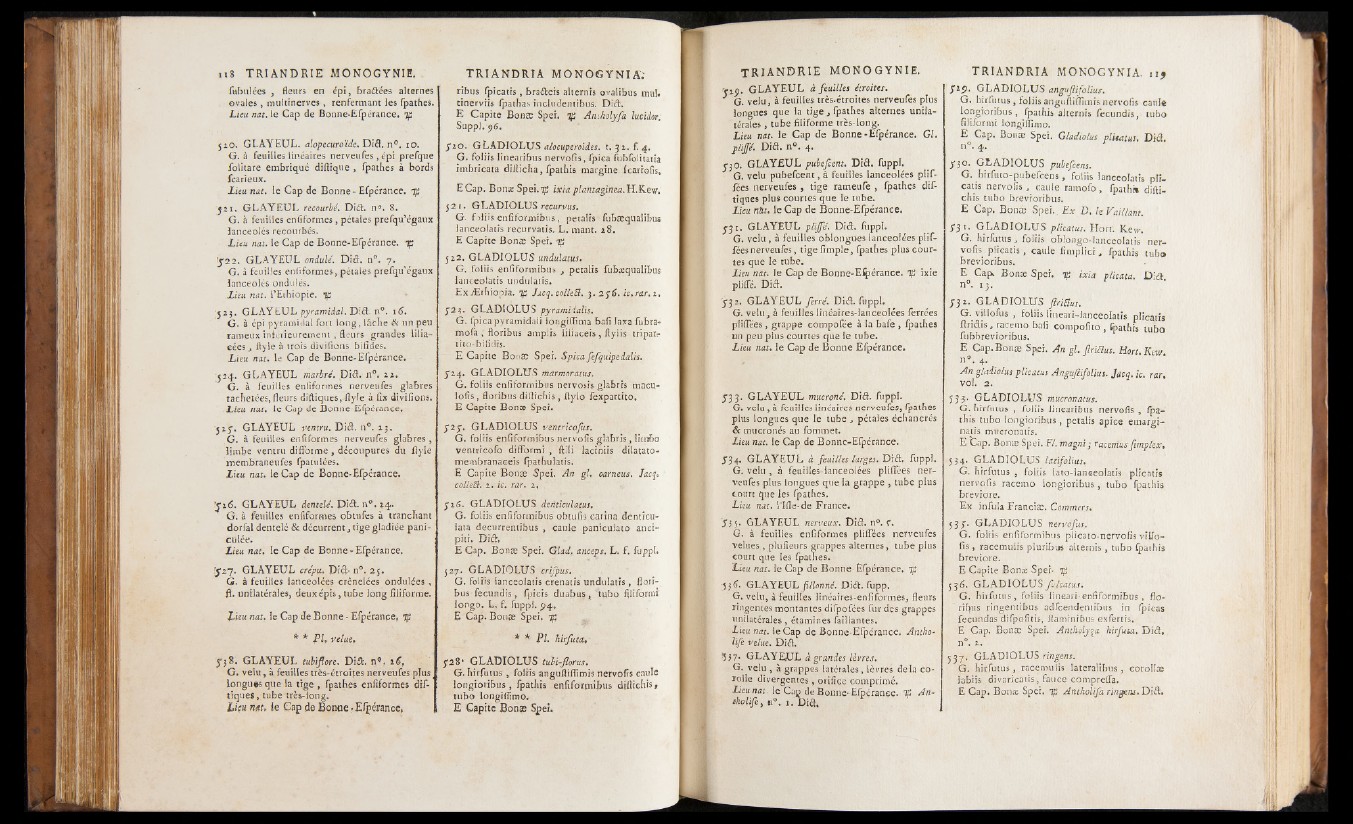 118 TRIANDRIE MONOGYNIE.
ſubulées , fleurs en épi, bractées alternes
ovales , multinerves , renfermant les ſpathes.
Lieu nat. le Cap de Bonne-Eſpérance. ♃
520. GLAYEUL. alopecuroïde. Dict. n°. 10.
G. à feuilles linéaires nerveuſes , épi preſque
ſolitare embriqué diſtique , ſpathes à bords
ſcarieux.
Lieu nat. le Cap de Bonne - Eſpérance. ♃
521. GLAYEUL recourbé. Dict. n°. 8.
G. à feuilles enſiformes, pétales preſqu'égaux
lancéolés recourbés.
Lieu nat. le Cap de Bonne-Eſpérance. ♃
522. GLAYEUL ondulé. Dict. n°. 7.
G. à feuilles enſiformes, pétales preſqu'égaux
lanceolés ondulés.
Lieu nat. l'Ethiopie. ♃
523. GLAYEUL pyramidal. Dict. n°. 16.
G. à épi pyramidal fort long, lâche & un peu
rameux inférieurement , fleurs grandes lilia-
cées , ſtyle à trois diviſions bifides.
Lieu nat. le Cap de Bonne-Eſpérance.
524. GLAYEUL marbré. Dict. n°. 22.
G. à feuilles enſiformes nerveuſes glabres
tachetées, fleurs diſtiques, ſtyle à ſix diviſions.
Lieu nat. le Cap de Bonne Eſpérance.
525. GLAYEUL ventru. Dict. n°. 23.
G. à feuilles enſiformes nerveuſes glabres ,
limbe ventru difforme , découpures du ſtyle
membraneuſes ſpatulées.
Lieu nat. le Cap de Bonne-Eſpérance.
526. GLAYEUL dentelé. Dict. n°. 24.
G. à feuilles enſiformes obtuſes à tranchant
dorſal dentelé & décurrent, tige gladiée pani-
culée.
Lieu nat. le Cap de Bonne - Eſpérance.
527. GLAYEUL crépu. Dict. n°. 25.
G. à feuilles lanceolées crênelées ondulées ,
fl. unilatérales, deux épis, tube long filiforme.
Lieu nat. le Cap de Bonne - Eſpérance. ♃
* * Pl. velue.
528. GLAYEUL tubiflore. Dict. n°. 26.
G. velu, à feuilles très-étroites nerveuſes plus
longues que la tige , ſpathes enſiformes diſ-
tiques, tube très-long.
Lieu nat. le Cap de Bonne - Eſpérance.
TRIANDRIA MONOGYNIA.
ribus ſpicatis , bracteis alternis ovalibus mul-
tinerviis ſpathas includentibus. Dict.
E Capite Bonæ Spei. ♃ Antholyſa lucidor.
Suppl. 96.
520. GLADIOLUS alocuperoïdes. t. 32. f. 4.
G. foliis linearibus nervoſis, ſpica ſubſolitaria
imbricata diſticha, ſpathis margine ſcarioſis.
E Cap. Bonæ Spei. ♃ ixia plantaginea. H.Kew.
521. GLADIOLUS recurvus.
G. foliis enſiformibus, petalis ſubæqualibus
lanceolatis recurvatis. L. mant. 28.
E Capite Bonæ Spei. ♃
522. GLADIOLUS undulatus.
G. foliis enſiformibus , petalis ſubæqualibus
lanceolatis undulatis.
Ex Æthiopia. ♃ Jacq. collect. 3. 256. ic. rar. 2.
523. GLADIOLUS pyramidalis.
G. ſpica pyramidali longiſſima baſi laxa ſubra-
moſa , floribus amplis liliaceis , ſtylis tripar-
tito-bifidis.
E Capite Bonæ Spei. Spica ſeſquipedalis.
524. GLADIOLUS marmoratus.
G. foliis enſiformibus nervosis glabris macu-
loſis, floribus diſtichis , ſtylo ſexpartito.
E Capite Bonæ Spei.
525. GLADIOLUS venericoſus.
G. foliis enſiformibus nervoſis glabris , limbo
ventricoſo difformi , ſtili laciniis dilatato-
membranaceis ſpathulatis.
E Capite Bonæ Spei. An gl. carneus. Jacq.
collect. 2. ic. rar. 2.
526. GLADIOLUS denticulatus.
G. foliis enſiformibus obtuſis carina denticu-
lata decurrentibus , caule paniculato anci-
piti. Dict.
E Cap. Bonæ Spei. Glad. anceps. L. f. ſuppl.
527. GLADIOLUS criſpus.
G. foliis lanceolatis crenatis undulatis , flori-
bus ſecundis , ſpicis duabus , tubo filiformi
longo. L. f. ſuppl. 94.
E Cap. Bonæ Spei. ♃
* * Pl. hirſuta.
528. GLADIOLUS tubi-florus.
G. hirſutus , foliis anguſtiſſimis nervoſis caule
longioribus , ſpathis enſiformibus diſtichis,
tubo longiſſimo.
E Capite Bonæ Spei.
TRIANDRIE MONOGYNIE.
529. GLAYEUL à feuilles étroites.
G. velu, à feuilles très-étroites nerveuſes plus
longues que la tige , ſpathes alternes unila-
térales , tube filiforme très-long.
Lieu nat. le Cap de Bonne - Eſpérance. Gl.
pliſſé. Dict. n°. 4.
530. GLAYEUL pubeſcent. Dict. ſuppl.
G. velu pubeſcent , à feuilles lanceolées pliſ-
ſées nerveuſes , tige rameuſe , ſpathes diſ-
tiques plus courtes que le tube.
Lieu nat. le Cap de Bonne-Eſpérance.
531. GLAYEUL pliſſé. Dict. ſuppl.
G. velu , à feuilles oblongues lanceolées pliſ-
ſées nerveuſes, tige ſimple, ſpathes plus cour-
tes que le tube.
Lieu nat. le Cap de Bonne-Eſpérance. ♃ ixie
pliſſé. Dict.
532. GLAYEUL ſerré. Dict. ſuppl.
G. velu, à feuilles linéaires-lanceolées ſerrées
pliſſées , grappe compoſée à la baſe , ſpathes
un peu plus courtes que le tube.
Lieu nat. le Cap de Bonne Eſpérance.
533. GLAYEUL mucroné. Dict. ſuppl.
G. velu , à feuilles linéaires nerveuſes, ſpathes
plus longues que le tube , pétales échancrés
& mucronés au ſommet.
Lieu nat. le Cap de Bonne-Eſpérance.
534. GLAYEUL à feuilles larges. Dict. ſuppl.
G. velu , à feuilles-lanceolées pliſſées ner-
veuſes plus longues que la grappe , tube plus
court que les ſpathes.
Lieu nat. l'Iſle-de France.
535. GLAYEUL nerveux. Dict. n°. 5.
G. à feuilles enſiformes pliſſées nerveuſes
velues , pluſieurs grappes alternes , tube plus
court que les ſpathes.
Lieu nat. le Cap de Bonne Eſpérance. ♃
536. GLAYEUL ſillonné. Dict. ſupp.
G. velu, à feuilles linéaires-enſiformes, fleurs
ringentes montantes diſpoſées ſur des grappes
unilatérales , étamines ſaillantes.
Lieu nat. le Cap de Bonne-Eſpérance. Antho-
liſe velue. Dict.
537. GLAYEUL à grandes lèvres.
G. velu , à grappes latérales , lèvres de la co-
rolle divergentes , orifice comprimé.
Lieu nat. le Cap de Bonne-Eſpérance. ♃ An-
tholiſe, n°. 1. Dict.
TRIANDRIA MONOGYNIA. 119
529. GLADIOLUS anguſtifolius.
G. hirſutus , foliis anguſtiſſimis nervoſis caule
longioribus , ſpathis alternis ſecundis , tubo
filiformi longiſſimo.
E Cap. Bonæ Spei. Gladiolus plicatus. Dict.
n°. 4.
530. GLADIOLUS pubeſcens.
G. hirſuto-pubeſcens , foliis lanceolatis pli-
catis nervoſis , caule ramoſo , ſpathis diſti-
chis tubo brevioribus.
E Cap. Bonæ Spei. Ex D. le Vaillant.
531. GLADIOLUS plicatus. Hort. Kew.
G. hirſutus , foliis oblongo-lanceolatis ner-
voſis plicatis , caule ſimplici , ſpathis tubo
brevioribus.
E Cap. Bonæ Spei. ♃ ixia plicata. Dict.
n°. 13.
532. GLADIOLUS ſtrictus.
G. villoſus , foliis lineari-lanceolatis plicatis
ſtrictis, racemo baſi compoſito , ſpathis tubo
ſubbrevioribus.
E Cap. Bonæ Spei. An gl. ſtrictus. Hort. Kew.
n°. 4.
An gladiolus plicatus Anguſtifolius. Jacq. ic. rar.
vol. 2.
533. GLADIOLUS mucronatus.
G. hirſutus , foliis linearibus nervoſis , ſpa-
this tubo longioribus , petalis apice emargi-
natis mucronatis.
E Cap. Bonæ Spei. Fl. magni ; racemus ſimplex.
534. GLADIOLUS latifolius.
G. hirſutus , foliis lato-lanceolatis plicatis
nervoſis racemo longioribus , tubo ſpathis
breviore.
Ex inſula Franciæ. Commers.
535. GLADIOLUS nervoſus.
G. foliis enſiformibus plicato-nervoſis villo-
ſis , racemulis pluribus alternis , tubo ſpathis
breviore.
E Capite Bonæ Spei. ♃
536. GLADIOLUS ſulcatus.
G. hirſutus , foliis lineari-enſiformibus , flo-
ribus ringentibus adſcendentibus in ſpicas
ſecundas diſpoſitis, ſtaminibus exſertis.
E Cap. Bonæ Spei. Antholyza hirſuta. Dict.
n°. 2.
537. GLADIOLUS ringens.
G. hirſutus , racemulis lateralibus , corollæ
labiis divaricatis, fauce compreſſa.
E Cap. Bonæ Spei. ♃ Antholiſa ringens. Dict.